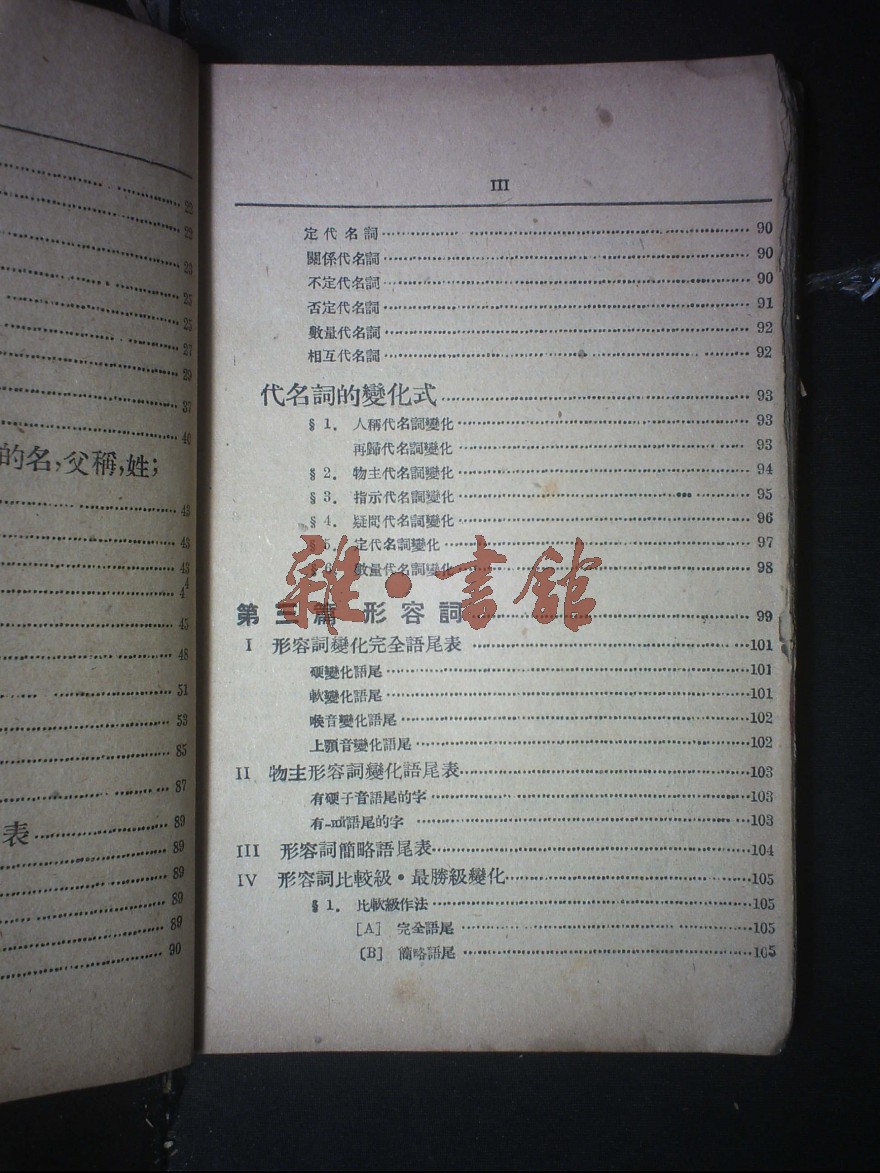 22
22
23
25
25
27
29
37
40
的名，父稱，姓；
43
43
43
4
45
48
51
53
85
87
89
表 89
89
89
89
90
III
定代名詞 90
關係代名詞 90
不定代名詞 90
否定代名詞 91
數量代名詞 92
相互代名詞 92
代名詞的變化式 93
§ 1. 人稱代名詞變化 93
再歸代名詞變化 93
§ 2. 物主代名詞變化 94
§ 3. 指示代名詞變化 95
§ 4. 疑問代名詞變化 96
§ 5. 定代名詞變化 97
§ 6. 數量代名詞變化 98
雜·書館
第三篇 形容詞 99
I 形容詞變化完全語尾表 101
硬變化語尾 101
軟變化語尾 101
喉音變化語尾 102
上顎音變化語尾 102
II 物主形容詞變化語尾表 103
有硬子音語尾的字 103
有-ий語尾的字 103
III 形容詞簡略語尾表 104
IV 形容詞比較級·最勝級變化 105
§ 1. 比較級作法
[A] 完全語尾 105
[B] 簡略語尾 105